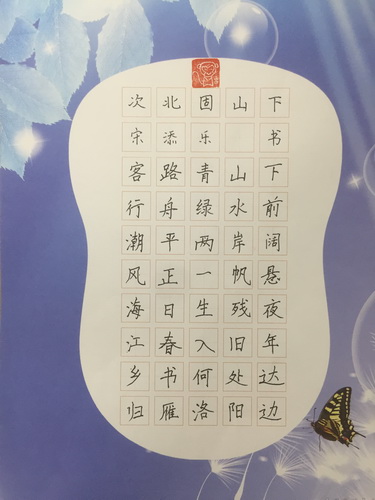 次北固山下
宋添乐 书
客路青山下
行舟绿水前
潮平两岸阔
风正一帆悬
海日生残夜
江春入旧年
乡书何处达
归雁洛阳边